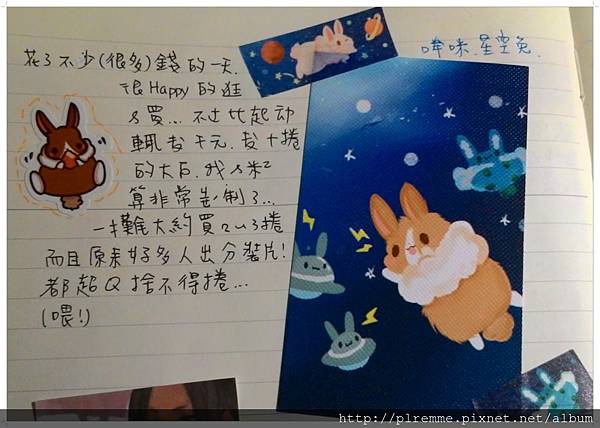 花了不少(很多)錢的一天.
很Happy的逛
&買... 不过比起动
輒者千元.者十捲
的大户.我人米²
算非常克制了...
一攤大約買2~3捲
而且原來好多人出分裝片!
都超Q捨不得捲...
(喂!)
哞咪.星空兔.
http://plremme.pixnet.net/album